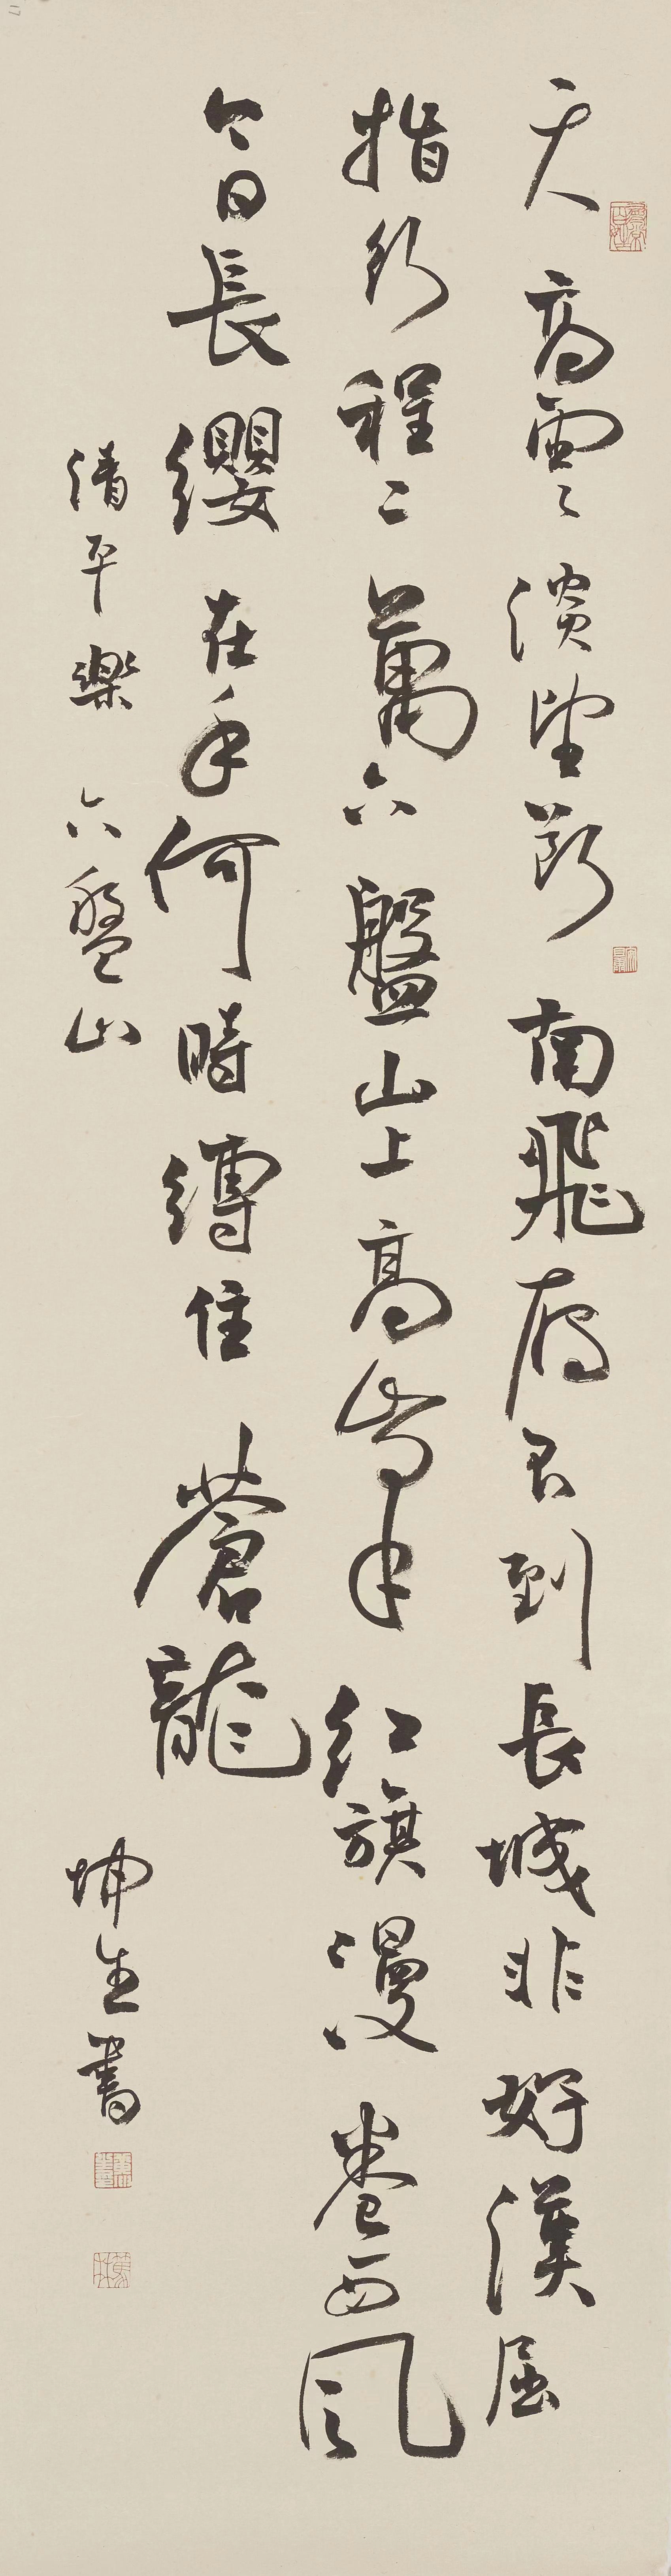 天高雲淡望斷南飛雁不到長城非好漢屈
指行程二萬六盤山上高峯紅旗漫卷西風
今日長纓在手何時縛住蒼龍
清平樂 六盤山 坤生書